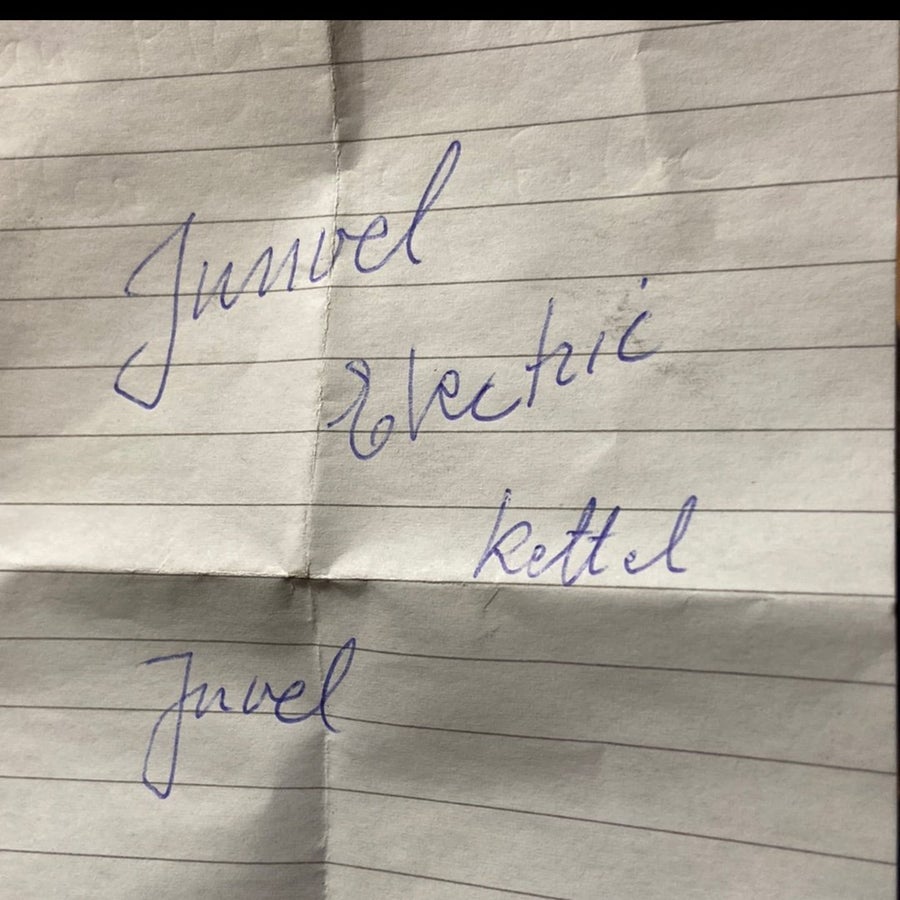 Junvel
Electric
kettel
Juvel